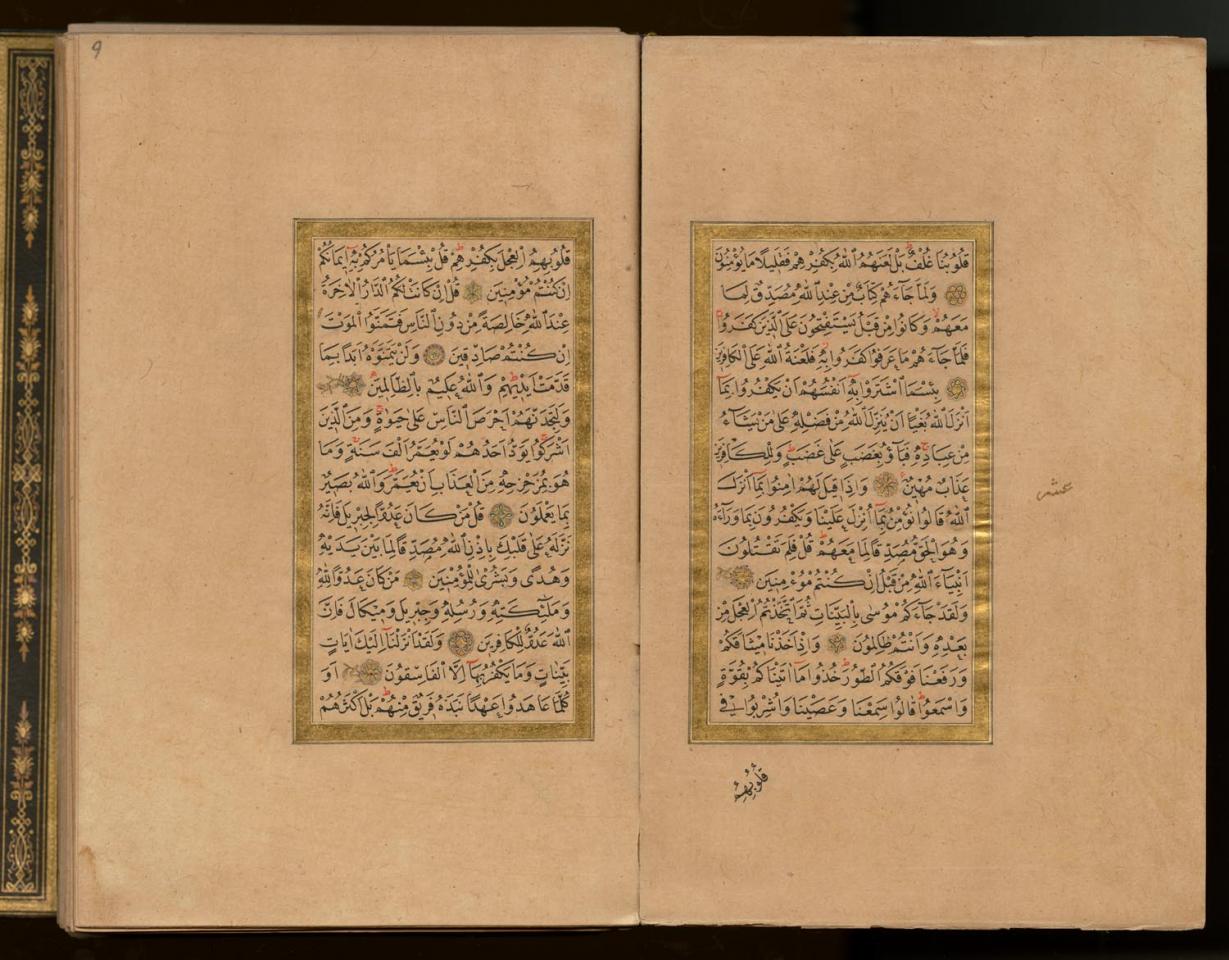 قُلُوبُنَا غُلْفٌ بَلْ لَعَنَهُمُ اللّٰهُ بِكُفْرِهِمْ فَقَلِيلًا مَا يُؤْمِنُونَ
وَلَمَّا جَاءَهُمْ كِتَابٌ مِنْ عِنْدِ اللّٰهِ مُصَدِّقٌ لِمَا
مَعَهُمْ وَكَانُوا مِنْ قَبْلُ يَسْتَفْتِحُونَ عَلَى الَّذِينَ كَفَرُوا
فَلَمَّا جَاءَهُمْ مَا عَرَفُوا كَفَرُوا بِهِ فَلَعْنَةُ اللّٰهِ عَلَى الْكَافِرِينَ
بِئْسَمَا اشْتَرَوْا بِهِ اَنْفُسَهُمْ اَنْ يَكْفُرُوا بِمَا
اَنْزَلَ اللّٰهُ بَغْيًا اَنْ يُنَزِّلَ اللّٰهُ مِنْ فَضْلِهِ عَلَى مَنْ يَشَاءُ
مِنْ عِبَادِهِ فَبَاؤُ بِغَضَبٍ عَلَى غَضَبٍ وَلِلْكَافِرِينَ
عَذَابٌ مُهِينٌ وَاِذَا قِيلَ لَهُمْ اٰمِنُوا بِمَا اَنْزَلَ
اللّٰهُ قَالُوا نُؤْمِنُ بِمَا اُنْزِلَ عَلَيْنَا وَيَكْفُرُونَ بِمَا وَرَاءَهُ
وَهُوَ الْحَقُّ مُصَدِّقًا لِمَا مَعَهُمْ قُلْ فَلِمَ تَقْتُلُونَ
اَنْبِيَاءَ اللّٰهِ مِنْ قَبْلُ اِنْ كُنْتُمْ مُؤْمِنِينَ
وَلَقَدْ جَاءَكُمْ مُوسٰى بِالْبَيِّنَاتِ ثُمَّ اتَّخَذْتُمُ الْعِجْلَ مِنْ
بَعْدِهِ وَاَنْتُمْ ظَالِمُونَ وَاِذْ اَخَذْنَا مِيثَاقَكُمْ
وَرَفَعْنَا فَوْقَكُمُ الطُّورَ خُذُوا مَا اٰتَيْنَاكُمْ بِقُوَّةٍ
وَاسْمَعُوا قَالُوا سَمِعْنَا وَعَصَيْنَا وَاُشْرِبُوا فِى
قُلُوبِهِمُ
عشر
9
قُلُوبِهِمُ الْعِجْلَ بِكُفْرِهِمْ قُلْ بِئْسَمَا يَأْمُرُكُمْ بِهِ اِيمَانُكُمْ
اِنْ كُنْتُمْ مُؤْمِنِينَ قُلْ اِنْ كَانَتْ لَكُمُ الدَّارُ الْاٰخِرَةُ
عِنْدَ اللّٰهِ خَالِصَةً مِنْ دُونِ النَّاسِ فَتَمَنَّوُا الْمَوْتَ
اِنْ كُنْتُمْ صَادِقِينَ وَلَنْ يَتَمَنَّوْهُ اَبَدًا بِمَا
قَدَّمَتْ اَيْدِيهِمْ وَاللّٰهُ عَلِيمٌ بِالظَّالِمِينَ
وَلَتَجِدَنَّهُمْ اَحْرَصَ النَّاسِ عَلَى حَيٰوةٍ وَمِنَ الَّذِينَ
اَشْرَكُوا يَوَدُّ اَحَدُهُمْ لَوْ يُعَمَّرُ اَلْفَ سَنَةٍ وَمَا
هُوَ بِمُزَحْزِحِهِ مِنَ الْعَذَابِ اَنْ يُعَمَّرَ وَاللّٰهُ بَصِيرٌ
بِمَا يَعْمَلُونَ قُلْ مَنْ كَانَ عَدُوًّا لِجِبْرِيلَ فَاِنَّهُ
نَزَّلَهُ عَلَى قَلْبِكَ بِاِذْنِ اللّٰهِ مُصَدِّقًا لِمَا بَيْنَ يَدَيْهِ
وَهُدًى وَبُشْرٰى لِلْمُؤْمِنِينَ مَنْ كَانَ عَدُوًّا لِلّٰهِ
وَمَلٰئِكَتِهِ وَرُسُلِهِ وَجِبْرِيلَ وَمِيكَالَ فَاِنَّ
اللّٰهَ عَدُوٌّ لِلْكَافِرِينَ وَلَقَدْ اَنْزَلْنَا اِلَيْكَ اٰيَاتٍ
بَيِّنَاتٍ وَمَا يَكْفُرُ بِهَا اِلَّا الْفَاسِقُونَ اَوَ
كُلَّمَا عَاهَدُوا عَهْدًا نَبَذَهُ فَرِيقٌ مِنْهُمْ بَلْ اَكْثَرُهُمْ